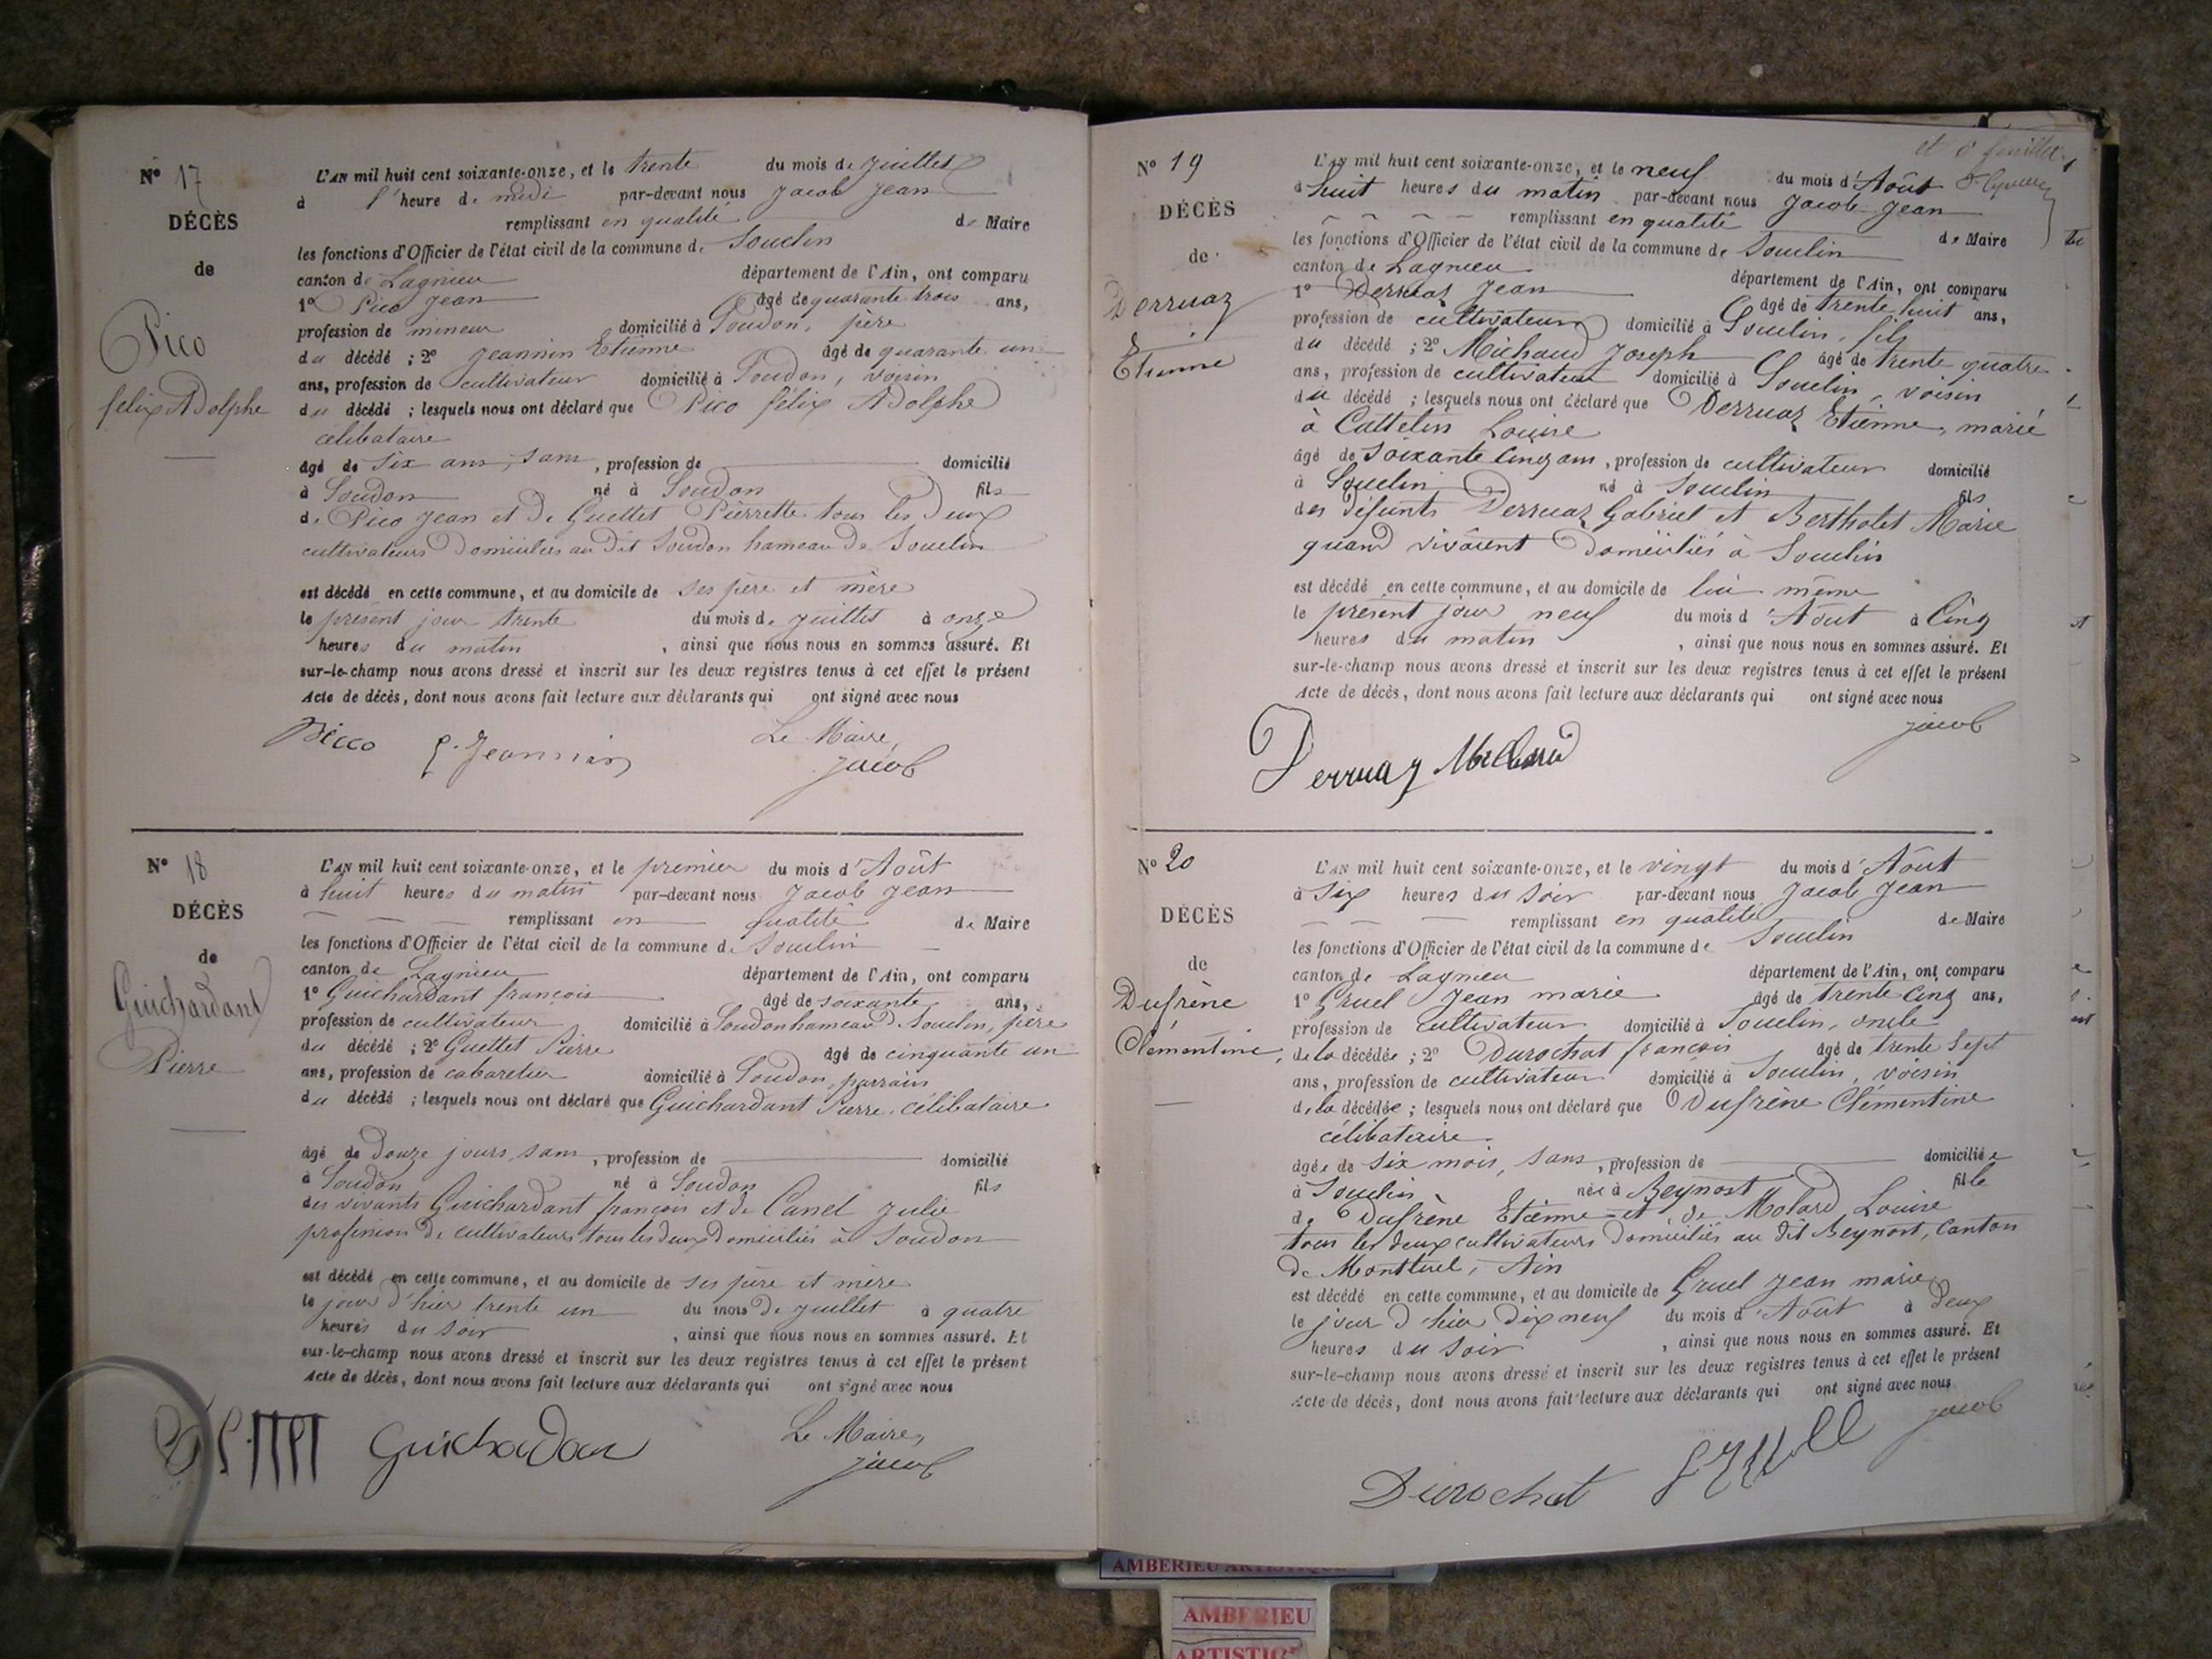 N° 17
DÉCÈS
de
Pico
félix Adolphe
L'AN mil huit cent soixante-onze, et le trente du mois de juillet
à l'heure de midi par-devant nous Jacob Jean
remplissant en qualité de Maire
les fonctions d'Officier de l'état civil de la commune de Souclin
canton de Lagnieu département de l'Ain, ont comparu
1° Pico Jean âgé de quarante trois ans,
profession de mineur domicilié à Soudon, père
du décédé ; 2° Jeannin Etienne âgé de quarante un
ans, profession de cultivateur domicilié à Soudon, voisin
du décédé ; lesquels nous ont déclaré que Pico félix Adolphe
célibataire
âgé de six ans, sans, profession de domicilié
à Soudon né à Soudon fils
de Pico Jean et de Guettet Pierrette tous les deux
cultivateurs domiciliés au dit Soudon hameau de Souclin
est décédé en cette commune, et au domicile de ses père et mère
le présent jour trente du mois de juillet à onze
heures du matin, ainsi que nous nous en sommes assuré. Et
sur-le-champ nous avons dressé et inscrit sur les deux registres tenus à cet effet le présent
Acte de décès, dont nous avons fait lecture aux déclarants qui ont signé avec nous
Picco E. Jeannin Le Maire,
Jacob
N° 18
DÉCÈS
de
Guichardant
Pierre
L'AN mil huit cent soixante-onze, et le premier du mois d'Août
à huit heures du matin par-devant nous Jacob Jean
remplissant en qualité de Maire
les fonctions d'Officier de l'état civil de la commune de Souclin
canton de Lagnieu département de l'Ain, ont comparu
1° Guichardant françois âgé de soixante ans,
profession de cultivateur domicilié à Soudon hameau d Souclin, père
du décédé ; 2° Guettet Pierre âgé de cinquante un
ans, profession de cabaretier domicilié à Soudon, parrain
du décédé ; lesquels nous ont déclaré que Guichardant Pierre, célibataire
âgé de douze jours, sans, profession de domicilié
à Soudon né à Soudon fils
des vivants Guichardant françois et de Canel Julie
profession de cultivateurs tous les deux domiciliés à Soudon
est décédé en cette commune, et au domicile de ses père et mère
le jour d'hier trente un du mois de juillet à quatre
heures du soir, ainsi que nous nous en sommes assuré. Et
sur-le-champ nous avons dressé et inscrit sur les deux registres tenus à cet effet le présent
Acte de décès, dont nous avons fait lecture aux déclarants qui ont signé avec nous
Guichardan Le Maire,
Jacob
et feuillet
N° 19
DÉCÈS
de
Derruaz
Etienne
L'AN mil huit cent soixante-onze, et le neuf du mois d'Août
à huit heures du matin par-devant nous Jacob Jean
remplissant en qualité de Maire
les fonctions d'Officier de l'état civil de la commune de Souclin
canton de Lagnieu département de l'Ain, ont comparu
1° Derruaz Jean âgé de trente huit ans,
profession de cultivateur domicilié à Souclin, fils
du décédé ; 2° Michaud Joseph âgé de trente quatre
ans, profession de cultivateur domicilié à Souclin, voisin
du décédé ; lesquels nous ont déclaré que Derruaz Etienne, marié
à Cattelin Louise
âgé de soixante cinq ans, profession de cultivateur domicilié
à Souclin né à Souclin fils
des défunts Derruaz Gabriel et Bertholet Marie
quand vivaient domiciliés à Souclin
est décédé en cette commune, et au domicile de lui même
le présent jour neuf du mois d'Août à cinq
heures du matin, ainsi que nous nous en sommes assuré. Et
sur-le-champ nous avons dressé et inscrit sur les deux registres tenus à cet effet le présent
Acte de décès, dont nous avons fait lecture aux déclarants qui ont signé avec nous
Jacob
Derruaz Michaud
N° 20
DÉCÈS
de
Dufrène
Clémentine,
L'AN mil huit cent soixante-onze, et le vingt du mois d'Août
à six heures du soir par-devant nous Jacob Jean
remplissant en qualité de Maire
les fonctions d'Officier de l'état civil de la commune de Souclin
canton de Lagnieu département de l'Ain, ont comparu
1° Gruel Jean marie âgé de trente cinq ans,
profession de cultivateur domicilié à Souclin, oncle
de la décédée ; 2° Durochat françois âgé de trente sept
ans, profession de cultivateur domicilié à Souclin, voisin
de la décédée ; lesquels nous ont déclaré que Dufrène Clémentine
célibataire
âgée de six mois, sans, profession de domiciliée
à Souclin née à Beynost fille
de Dufrène Etienne et de Molard Louise
tous les deux cultivateurs domiciliés au dit Beynost, canton
de Montluel, Ain
est décédé en cette commune, et au domicile de Gruel Jean marie
le jour d'hier dix neuf du mois d'Août à deux
heures du soir, ainsi que nous nous en sommes assuré. Et
sur-le-champ nous avons dressé et inscrit sur les deux registres tenus à cet effet le présent
Acte de décès, dont nous avons fait lecture aux déclarants qui ont signé avec nous
Jacob
Durochat
AMBERIEU ARTISTIQUE
AMBERIEU
ARTISTIQUE